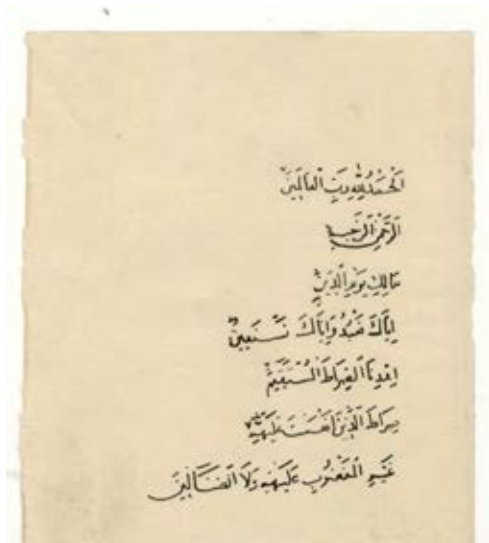 الْحَمْدُ لِلَّهِ رَبِّ الْعَالَمِينَ
الرَّحْمَنِ الرَّحِيمِ
مَالِكِ يَوْمِ الدِّينِ
إِيَّاكَ نَعْبُدُ وَإِيَّاكَ نَسْتَعِينُ
اهْدِنَا الصِّرَاطَ الْمُسْتَقِيمَ
صِرَاطَ الَّذِينَ أَنْعَمْتَ عَلَيْهِمْ
غَيْرِ الْمَغْضُوبِ عَلَيْهِمْ وَلَا الضَّالِّينَ